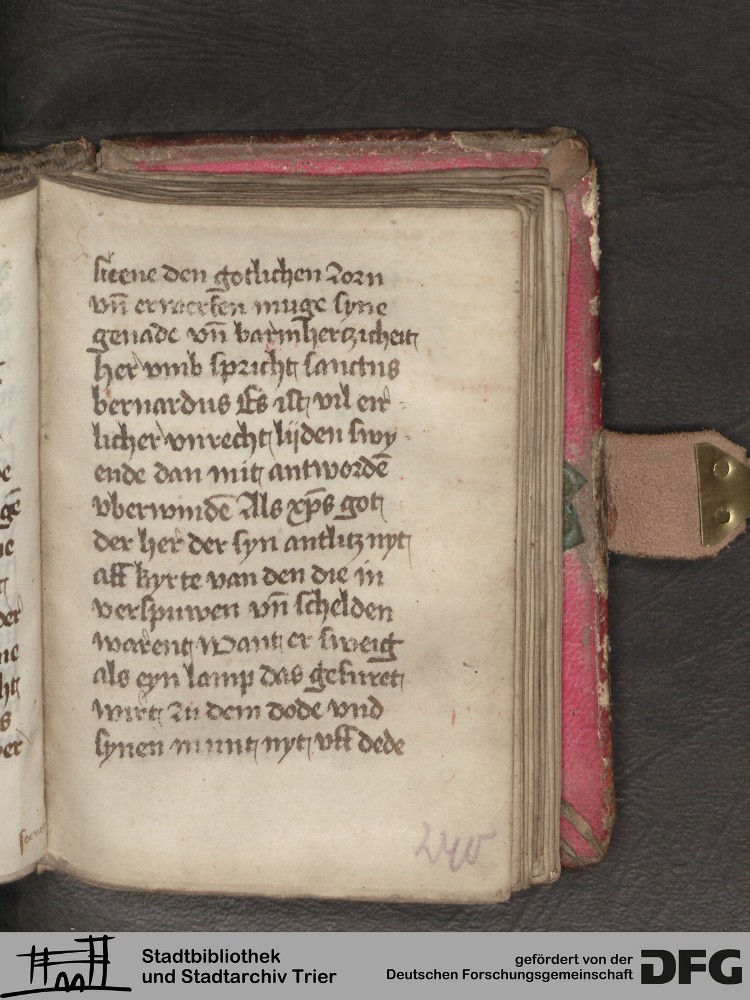 sweene den gotlichen zorn
vn̄ erwerfen muge syne
genade vn̄ barmhertzicheit
her vmb spricht sanctus
bernardus Es ist vil er
licher vnrecht lijden swy
ende dan mit antwordē
vberwindē Als xp̄s got
der her der syn antlitz nyt
aff kyrte van den die in
verspuwen vn̄ schelden
warent want er sweig
als eyn lamp das gefuret
wirt zu dem dode vnd
synen munt nyt vff dede
240
Stadtbibliothek
und Stadtarchiv Trier
gefördert von der
Deutschen Forschungsgemeinschaft
DFG